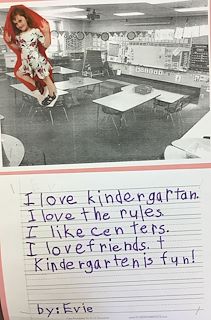 I love kindergartan.
I love the rules.
I like centers.
I love friends. t
Kindergarten is fun!
by: Evie